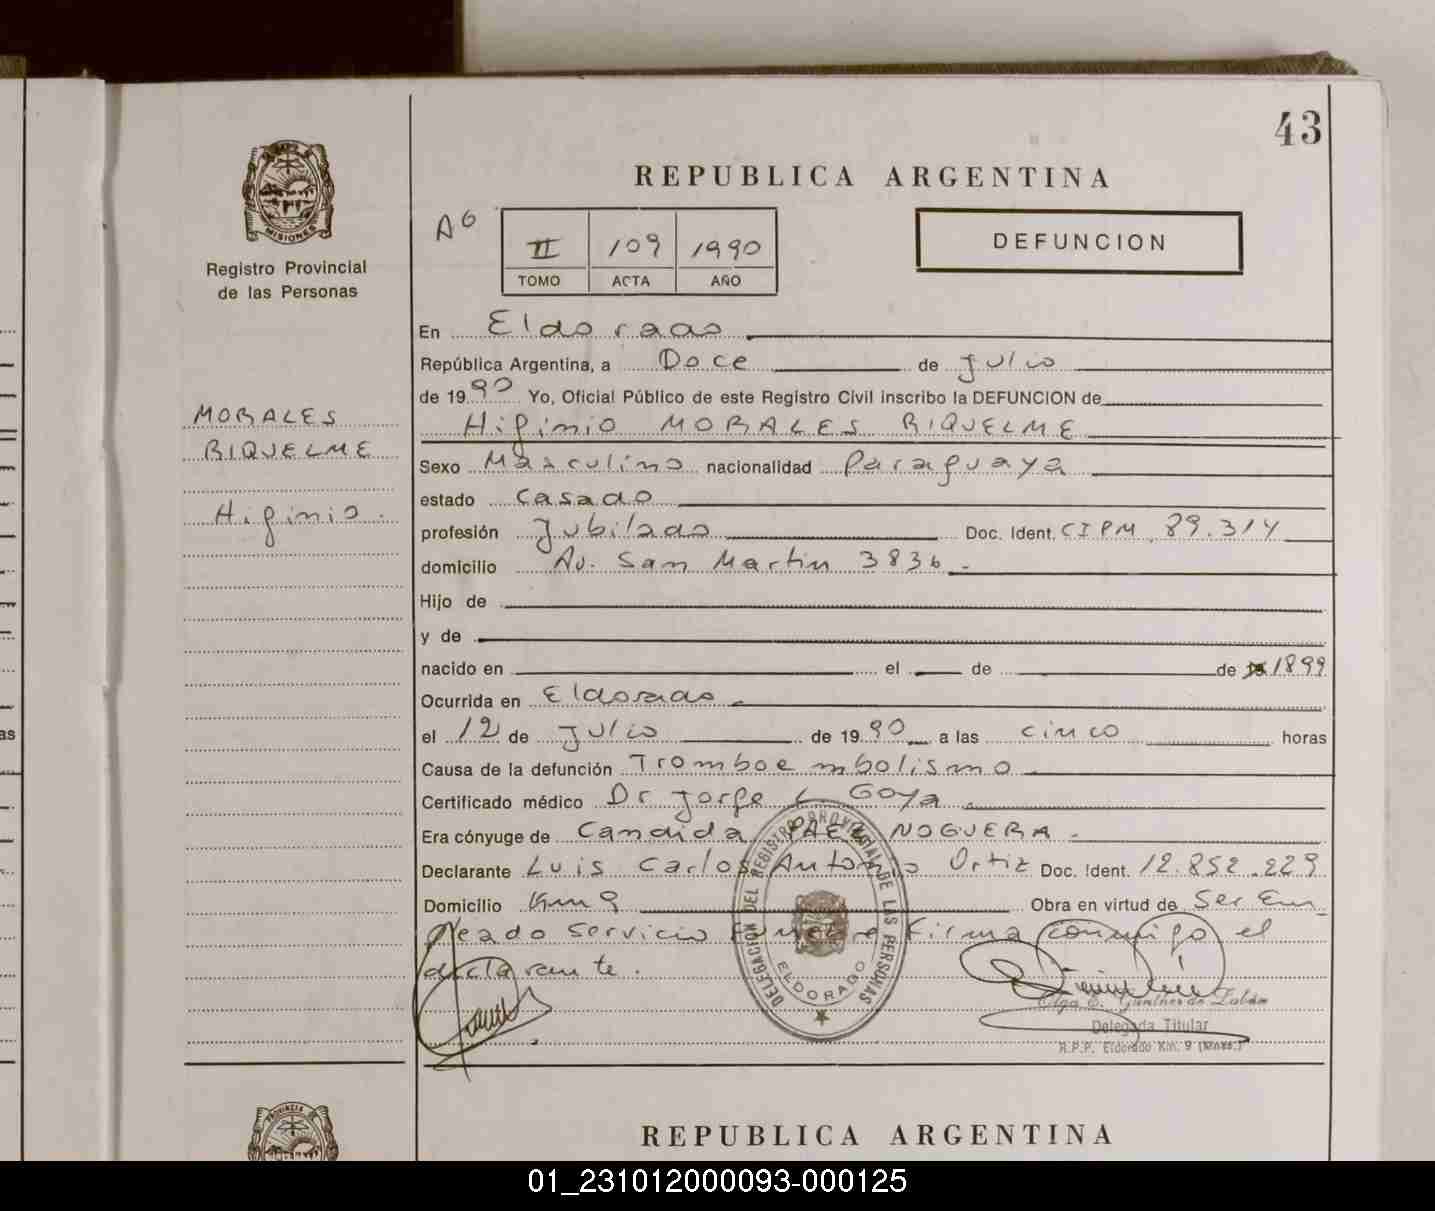 43
MISIONES
Registro Provincial
de las Personas
REPUBLICA ARGENTINA
II 109 1990
TOMO ACTA AÑO
DEFUNCION
En Eldorado
República Argentina, a Doce de Julio
de 1990 Yo, Oficial Público de este Registro Civil inscribo la DEFUNCION de
Higinio MORALES RIQUELME
MORALES
RIQUELME
Higinio.
Sexo Masculino nacionalidad Paraguaya
estado Casado
profesión Jubilado Doc. Ident. CIPM 89.314
domicilio Av. San Martin 3836
Hijo de
y de
nacido en el de de 1899
Ocurrida en Eldorado
el 12 de Julio de 1990 a las cinco horas
Causa de la defunción Tromboembolismo
Certificado médico Dr Jorge L Goya
Era cónyuge de Candida PAEZ NOGUERA
Declarante Luis Carlos Antonio Ortiz Doc. Ident. 12.852.229
Domicilio Km 9 Obra en virtud de Ser Em
pleado Servicio Funebre Firma conmigo el
declarante.
DELEGACION DEL REGISTRO PROVINCIAL DE LAS PERSONAS
ELDORADO
Olga E. Günther de
Delegada Titular
R.P.P. Eldorado Km. 9 (Mnes.)
PROVINCIA DE
REPUBLICA ARGENTINA
as
01_231012000093-000125